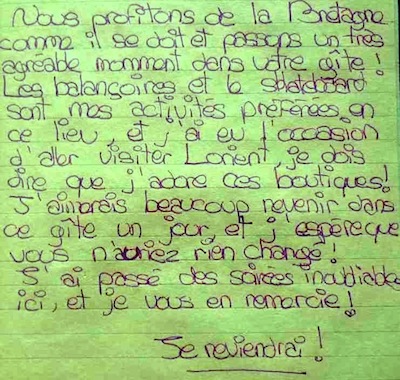 Nous profitons de la Bretagne
comme il se doit et passons un très
agréable momment dans votre gîte !
Les balançoires et le skateboard
sont mes activités préférées en
ce lieu, et j'ai eu l'occasion
d'aller visiter Lorient, je dois
dire que j'adore ces boutiques !
J'aimerais beaucoup revenir dans
ce gîte un jour, et j'espère que
vous n'auriez rien changé !
J'ai passé des soirées inoubliables
ici, et je vous en remercie !
Je reviendrai !